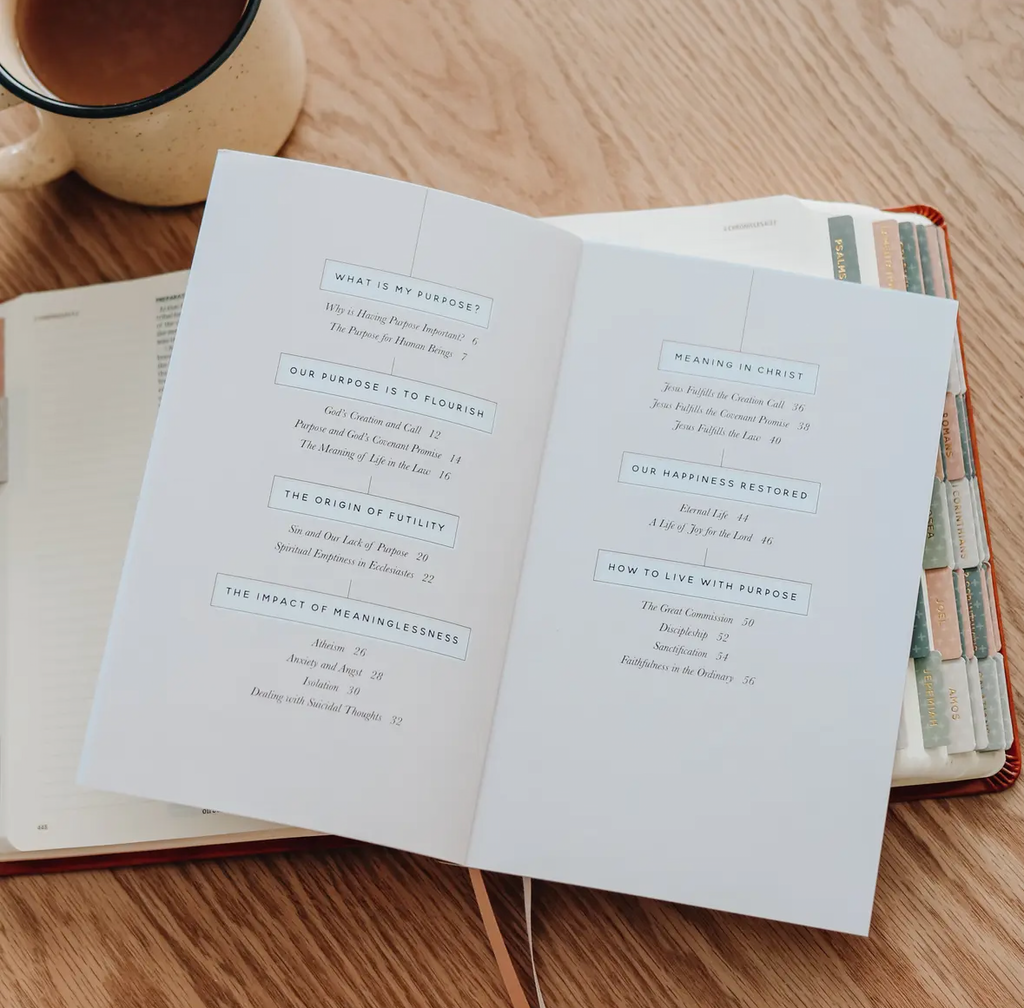 WHAT IS MY PURPOSE?
Why is Having Purpose Important? 6
The Purpose for Human Beings 7
OUR PURPOSE IS TO FLOURISH
God's Creation and Call 12
Purpose and God's Covenant Promise 14
The Meaning of Life in the Law 16
THE ORIGIN OF FUTILITY
Sin and Our Lack of Purpose 20
Spiritual Emptiness in Ecclesiastes 22
THE IMPACT OF MEANINGLESSNESS
Atheism 26
Anxiety and Angst 28
Isolation 30
Dealing with Suicidal Thoughts 32
MEANING IN CHRIST
Jesus Fulfills the Creation Call 36
Jesus Fulfills the Covenant Promise 38
Jesus Fulfills the Law 40
OUR HAPPINESS RESTORED
Eternal Life 44
A Life of Joy for the Lord 46
HOW TO LIVE WITH PURPOSE
The Great Commission 50
Discipleship 52
Sanctification 54
Faithfulness in the Ordinary 56
PSALMS
ROMANS
CORINTHIANS
JOEL
JEREMIAH
AMOS